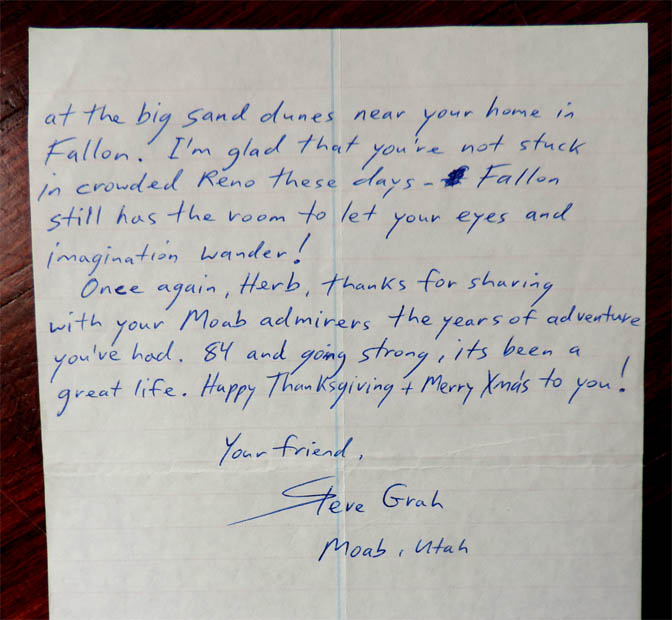 at the big sand dunes near your home in
Fallon. I'm glad that you're not stuck
in crowded Reno these days - Fallon
still has the room to let your eyes and
imagination wander!
Once again, Herb, thanks for sharing
with your Moab admirers the years of adventure
you've had. 84 and going strong, its been a
great life. Happy Thanksgiving + Merry Xmas to you!
Your friend,
Steve Grah
Moab, Utah